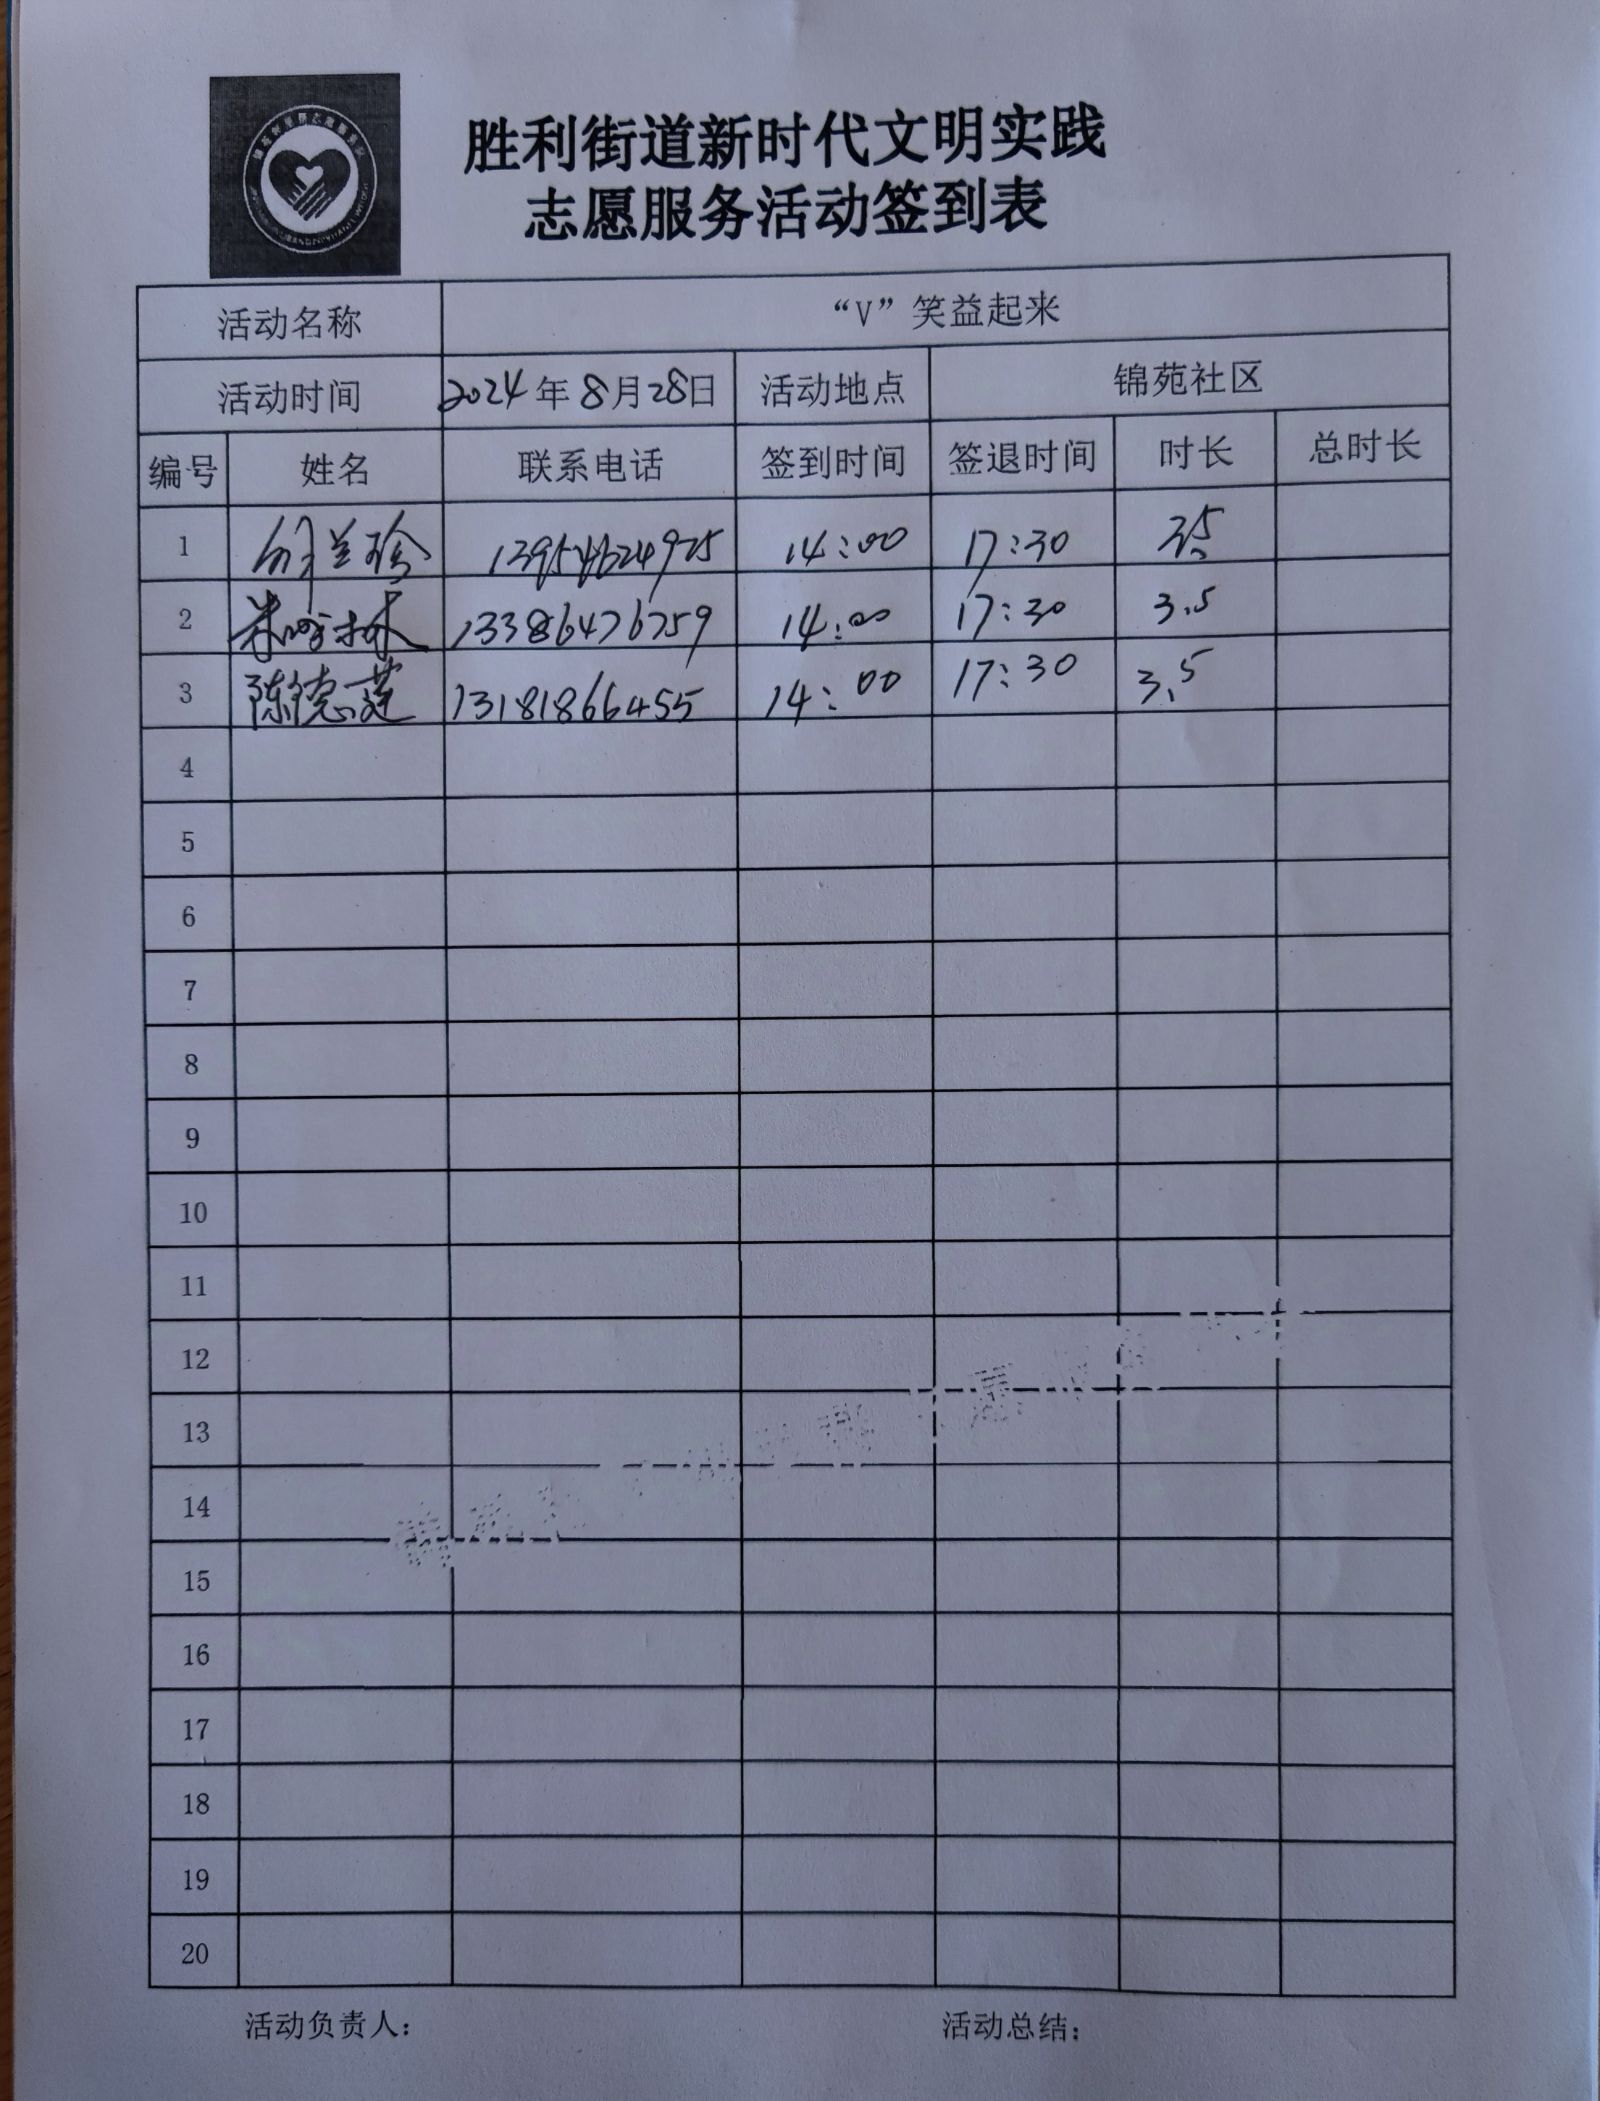 胜利街道新时代文明实践
志愿服务活动签到表
活动名称 “V”笑益起来
活动时间 2024年8月28日 活动地点 锦苑社区
编号 姓名 联系电话 签到时间 签退时间 时长 总时长
1 兰珍 14:00 17:30 3.5
2 13386476759 14:00 17:30 3.5
3 陈德莲 13181866455 14:00 17:30 3.5
4
5
6
7
8
9
10
11
12
13
14
15
16
17
18
19
20
活动负责人: 活动总结: